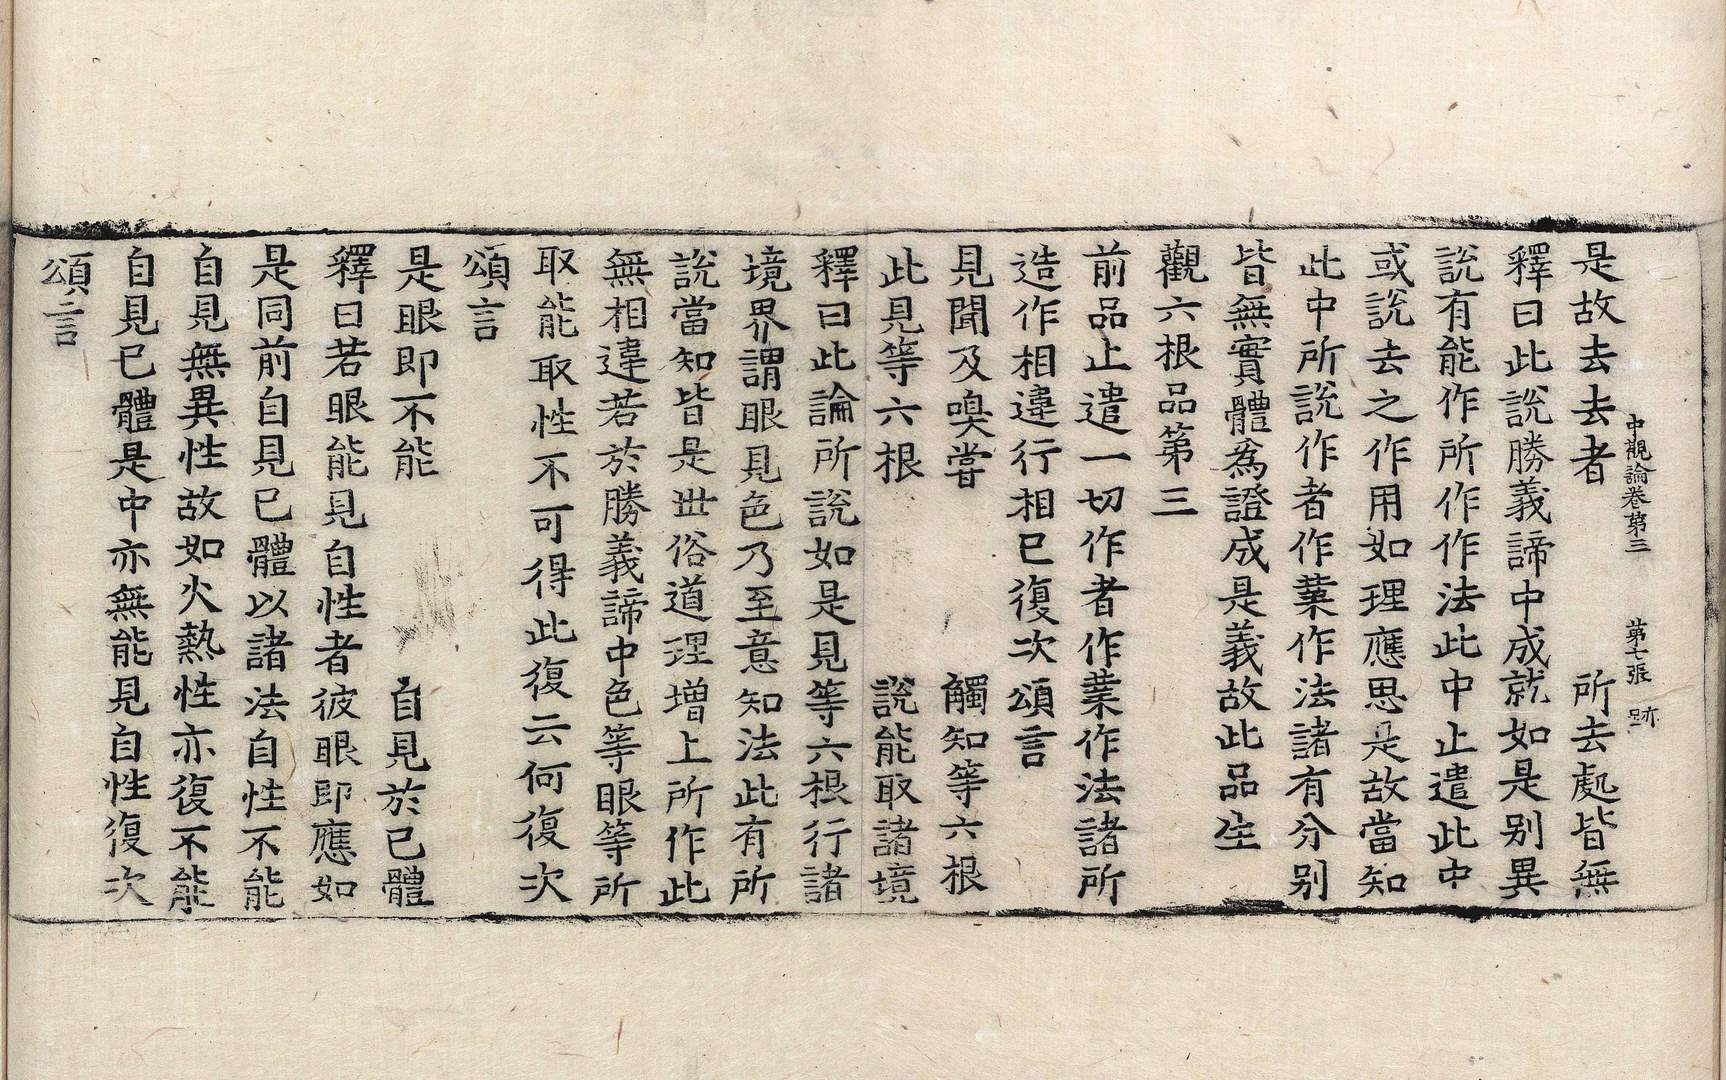 中觀論卷第三　第七張　跡
是故去去者　所去處皆無
釋曰此說勝義諦中成就如是别異
說有能作所作作法此中止遣此中
或說去之作用如理應思是故當知
此中所說作者作業作法諸有分别
皆無實體爲證成是義故此品生
觀六根品第三
前品止遣一切作者作業作法諸所
造作相違行相已復次頌言
見聞及嗅嘗　觸知等六根
此見等六根　說能取諸境
釋曰此論所說如是見等六根行諸
境界謂眼見色乃至意知法此有所
說當知皆是世俗道理增上所作此
無相違若於勝義諦中色等眼等所
取能取性不可得此復云何復次
頌言
是眼即不能　自見於己體
釋曰若眼能見自性者彼眼即應如
是同前自見己體以諸法自性不能
自見無異性故如火熱性亦復不能
自見己體是中亦無能見自性復次
頌言